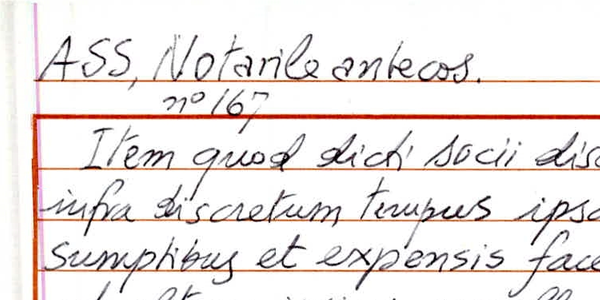 ASS, Notarile antecos.
nº 167
Item quod dicti socii disc
infra discretum tempus ipso
sumptibus et expensis face